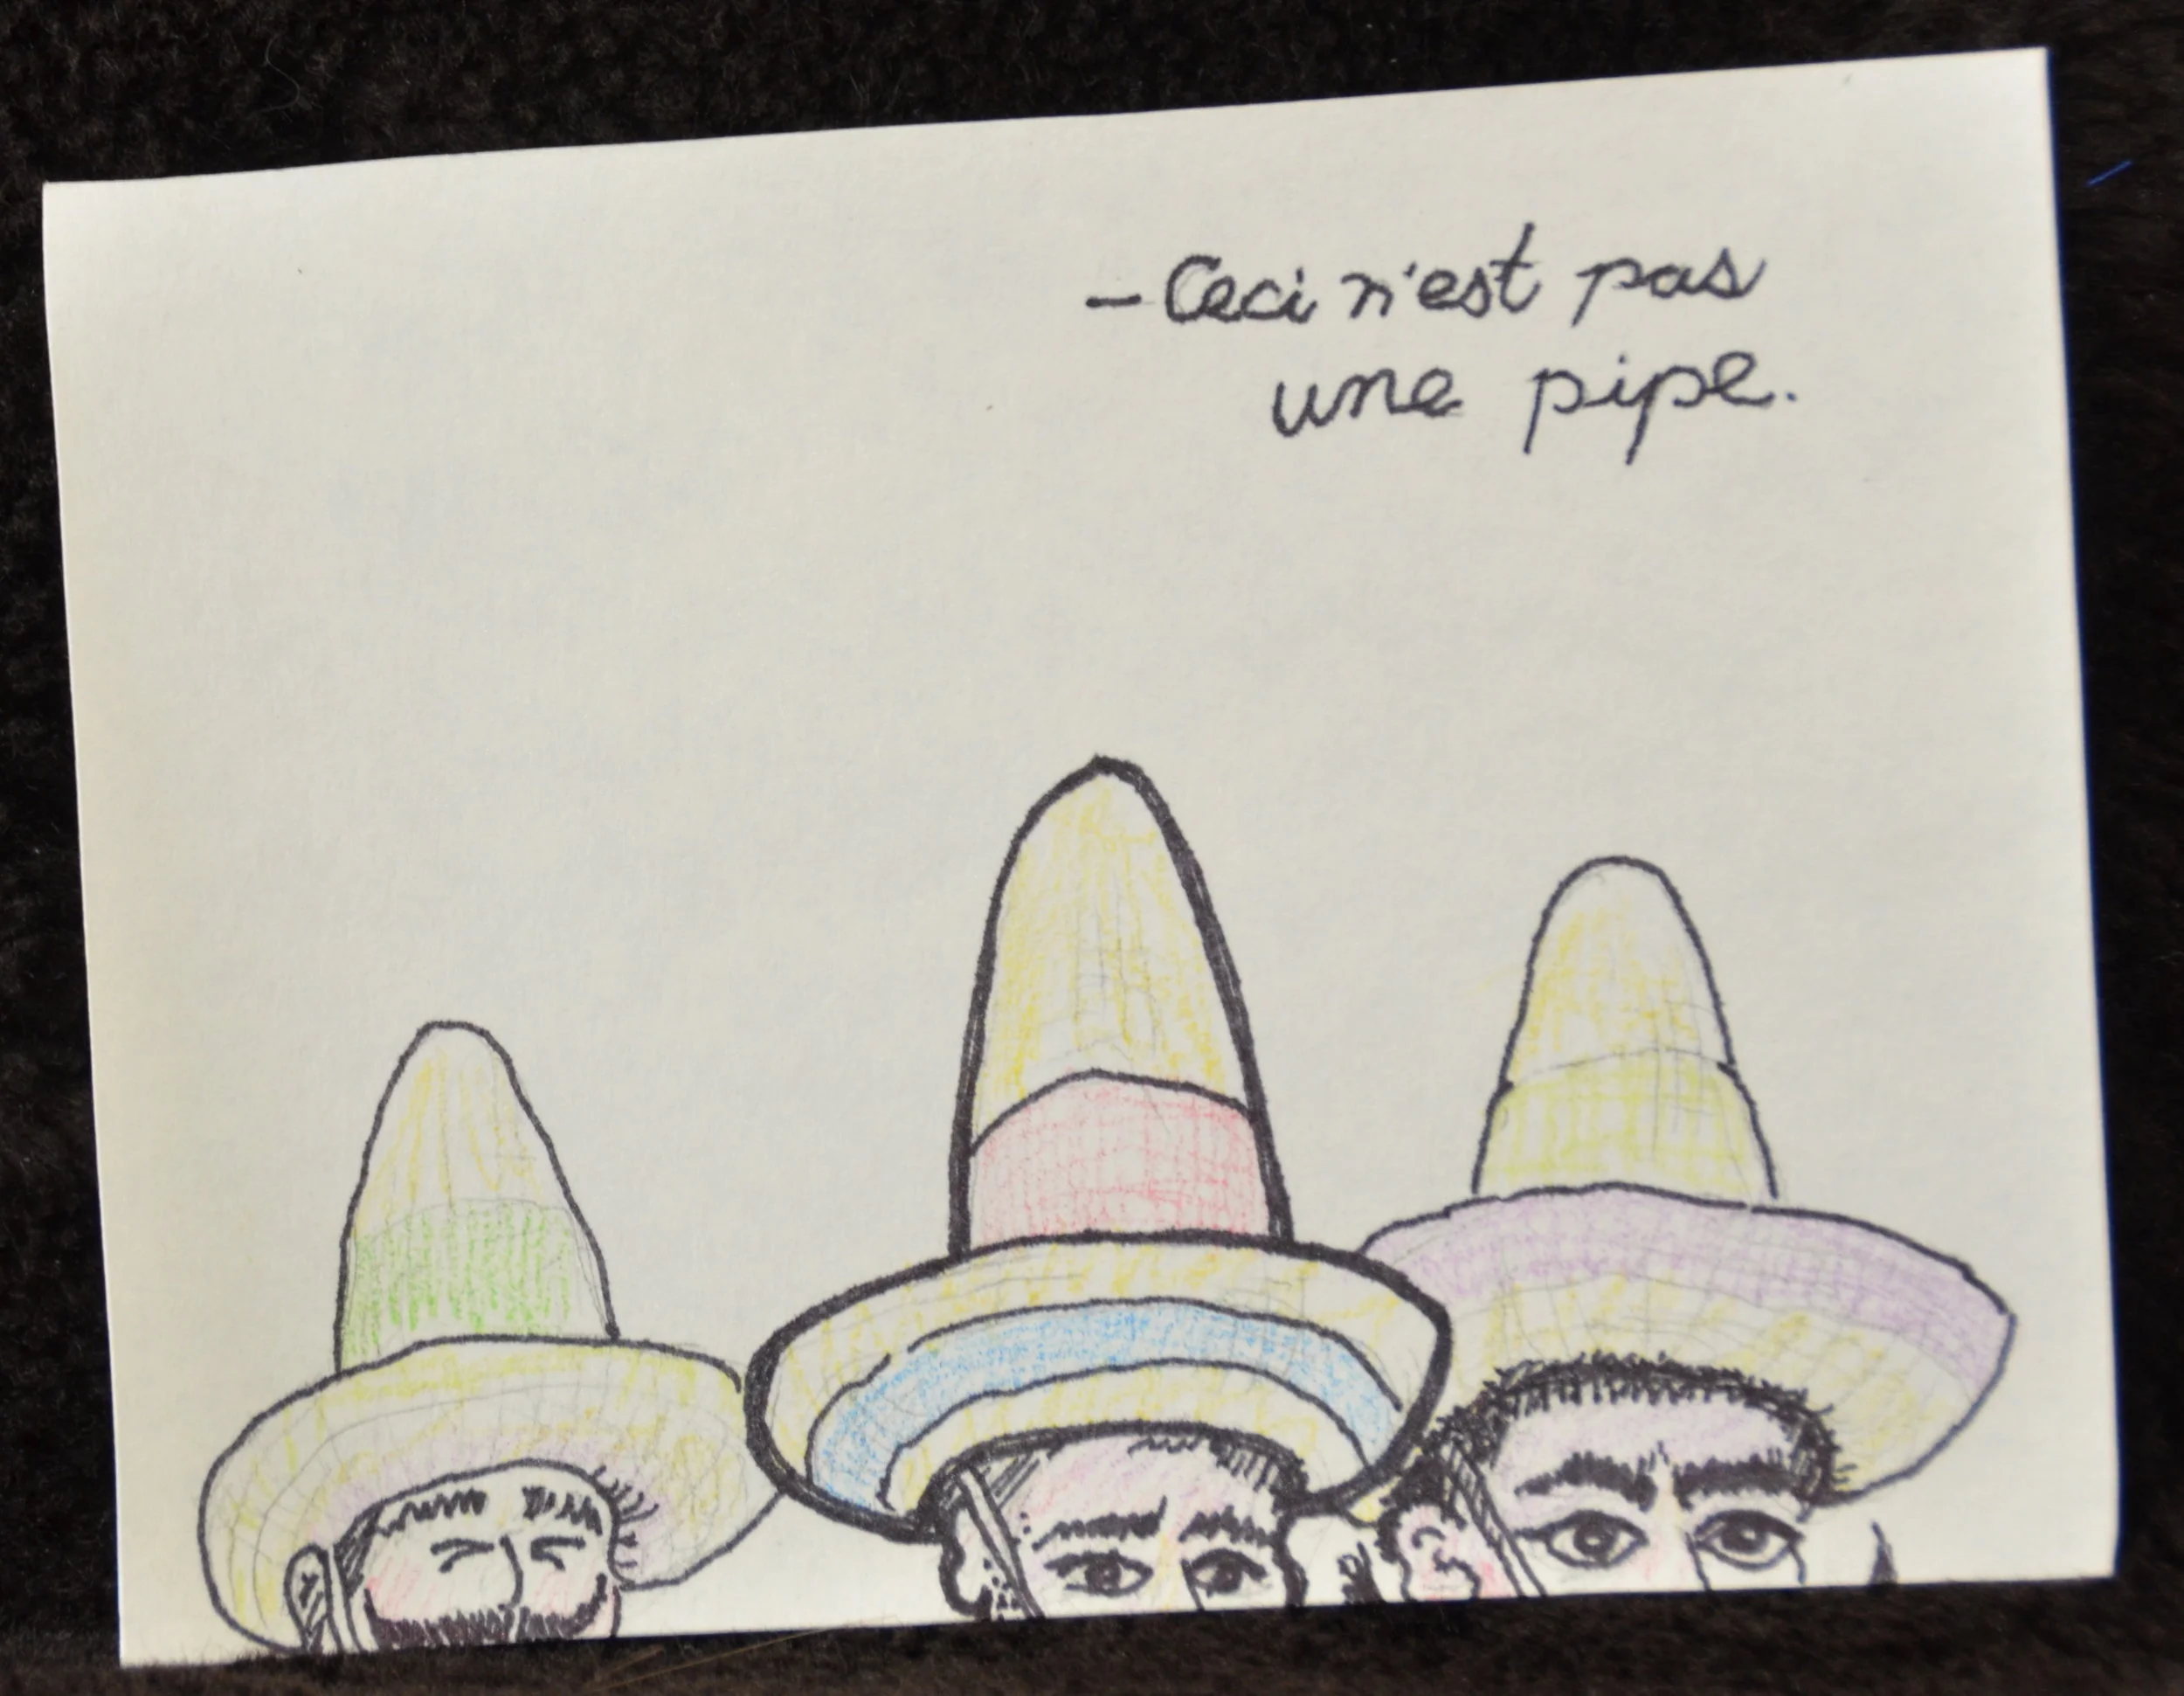 - Ceci n'est pas
une pipe.